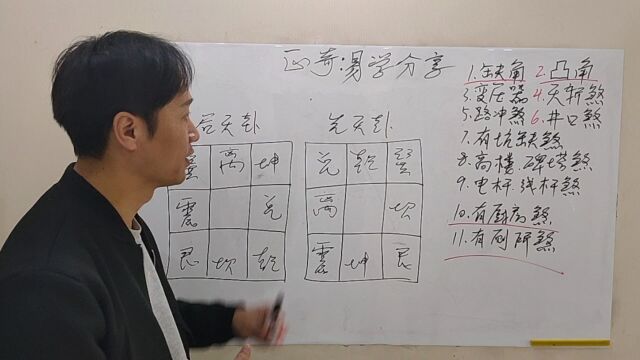 正奇易学分享
后天卦
先天卦
離 坤
震 兑
艮 坎 乾
兑 乾 巽
离 坎
震 坤 艮
1.缺角 2.凸角
3.变压器 4.天斩煞
5.路冲煞 6.井口煞
7.有坑缺煞
8.高楼碑塔煞
9.电杆线杆煞
10.有厨病煞
11.有厕阴煞